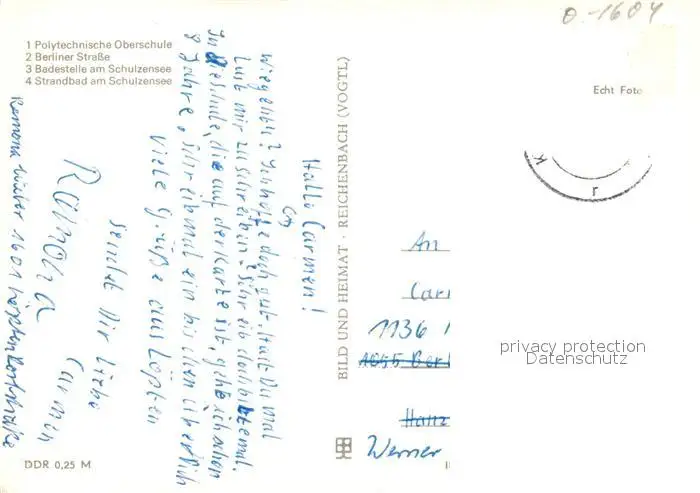 O-1604
1 Polytechnische Oberschule
2 Berliner Straße
3 Badestelle am Schulzensee
4 Strandbad am Schulzensee
Echt Foto
Hallo Carmen!
Wie geht's? Ich hoffe doch gut. Hast Du mal
Lust mir zu schreiben? Schreib doch bitte mal.
In die Schule, die auf der Karte ist, gehe ich schon
8 Jahre. Schreib mal ein bischen über Dich
Viele Grüße aus Löpten
sendet Dir liebe
Carmen
Ramona
Ramona 1601 Löpten
BILD UND HEIMAT · REICHENBACH (VOGTL)
An
Car
1136
1055 Ber
Hanz
Werner
privacy protection
Datenschutz
DDR 0,25 M